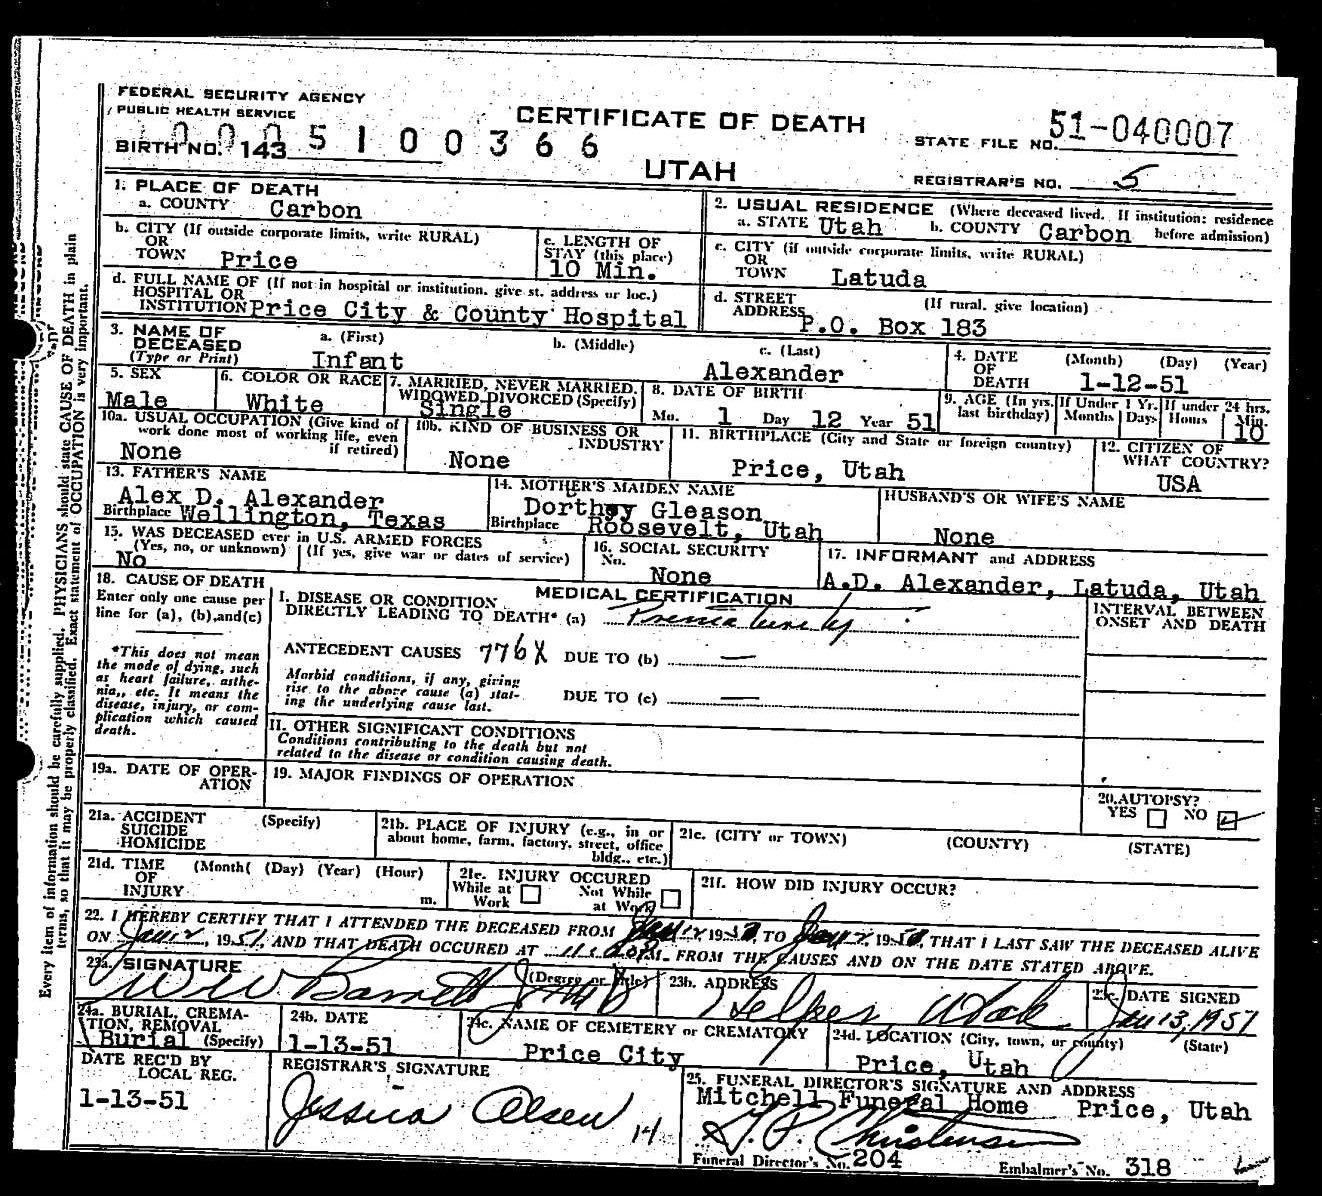 FEDERAL SECURITY AGENCY
PUBLIC HEALTH SERVICE
CERTIFICATE OF DEATH
UTAH
STATE FILE NO. 51-040007
BIRTH NO. 143 5100366
REGISTRAR'S NO. 5
1. PLACE OF DEATH
a. COUNTY Carbon
b. CITY (If outside corporate limits, write RURAL)
OR
TOWN Price
c. LENGTH OF
STAY (this place)
10 Min.
d. FULL NAME OF (If not in hospital or institution, give st. address or loc.)
HOSPITAL OR
INSTITUTION Price City & County Hospital
2. USUAL RESIDENCE (Where deceased lived. If institution: residence
a. STATE Utah b. COUNTY Carbon before admission)
c. CITY (if outside corporate limits, write RURAL)
OR
TOWN Latuda
d. STREET (If rural, give location)
ADDRESS P.O. Box 183
3. NAME OF
DECEASED
(Type or Print)
a. (First) b. (Middle) c. (Last)
Infant Alexander
4. DATE (Month) (Day) (Year)
OF
DEATH 1-12-51
5. SEX
Male
6. COLOR OR RACE
White
7. MARRIED, NEVER MARRIED,
WIDOWED, DIVORCED (Specify)
Single
8. DATE OF BIRTH
Mo. 1 Day 12 Year 51
9. AGE (In yrs. last birthday)
If Under 1 Yr.
Months Days
If under 24 hrs.
Hours Min.
10
10a. USUAL OCCUPATION (Give kind of
work done most of working life, even
if retired)
None
10b. KIND OF BUSINESS OR
INDUSTRY
None
11. BIRTHPLACE (City and State or foreign country)
Price, Utah
12. CITIZEN OF
WHAT COUNTRY?
USA
13. FATHER'S NAME
Alex D. Alexander
Birthplace Wellington, Texas
14. MOTHER'S MAIDEN NAME
Dorthey Gleason
Birthplace Roosevelt, Utah
HUSBAND'S OR WIFE'S NAME
None
15. WAS DECEASED ever in U.S. ARMED FORCES
(Yes, no, or unknown) (If yes, give war or dates of service)
No
16. SOCIAL SECURITY
No.
None
17. INFORMANT and ADDRESS
A.D. Alexander, Latuda, Utah
18. CAUSE OF DEATH
Enter only one cause per
line for (a), (b),and(c)
*This does not mean
the mode of dying, such
as heart failure, asthe-
nia,, etc. It means the
disease, injury, or com-
plication which caused
death.
MEDICAL CERTIFICATION
I. DISEASE OR CONDITION
DIRECTLY LEADING TO DEATH* (a) Prematurity
ANTECEDENT CAUSES 776X DUE TO (b) —
Morbid conditions, if any, giving
rise to the above cause (a) stat-
ing the underlying cause last.
DUE TO (c) —
II. OTHER SIGNIFICANT CONDITIONS
Conditions contributing to the death but not
related to the disease or condition causing death.
INTERVAL BETWEEN
ONSET AND DEATH
19a. DATE OF OPER-
ATION
19. MAJOR FINDINGS OF OPERATION
20.AUTOPSY?
YES NO
21a. ACCIDENT (Specify)
SUICIDE
HOMICIDE
21b. PLACE OF INJURY (e.g., in or
about home, farm, factory, street, office
bldg., etc.)
21c. (CITY or TOWN) (COUNTY) (STATE)
21d. TIME (Month( (Day) (Year) (Hour)
OF
INJURY m.
21e. INJURY OCCURED
While at Work Not While at Work
21f. HOW DID INJURY OCCUR?
22. I HEREBY CERTIFY THAT I ATTENDED THE DECEASED FROM Jan 12, 1951, TO Jan 12, 1951, THAT I LAST SAW THE DECEASED ALIVE
ON Jan 12, 1951, AND THAT DEATH OCCURED AT M. FROM THE CAUSES AND ON THE DATE STATED ABOVE.
23a. SIGNATURE (Degree or title)
W W Barnett
23b. ADDRESS
Helper, Utah
23c. DATE SIGNED
Jan 13, 1951
24a. BURIAL, CREMA-
TION, REMOVAL
Burial (Specify)
24b. DATE
1-13-51
24c. NAME OF CEMETERY or CREMATORY
Price City
24d. LOCATION (City, town, or county) (State)
Price, Utah
DATE REC'D BY
LOCAL REG.
1-13-51
REGISTRAR'S SIGNATURE
Jessica Olsen 14
25. FUNERAL DIRECTOR'S SIGNATURE AND ADDRESS
Mitchell Funeral Home Price, Utah
Christensen
Funeral Director's No. 204 Embalmer's No. 318
Every item of information should be carefully supplied. PHYSICIANS should state CAUSE OF DEATH in plain
terms, so that it may be properly classified. Exact statement of OCCUPATION is very important.